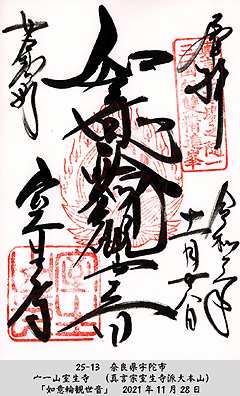 奉拝
令和三年
十一月廿八日
如意輪観世音
女人高野
室生寺
25-13 奈良県宇陀市
宀一山室生寺 (真言宗室生寺派大本山)
「如意輪観世音」 2021年11月28日